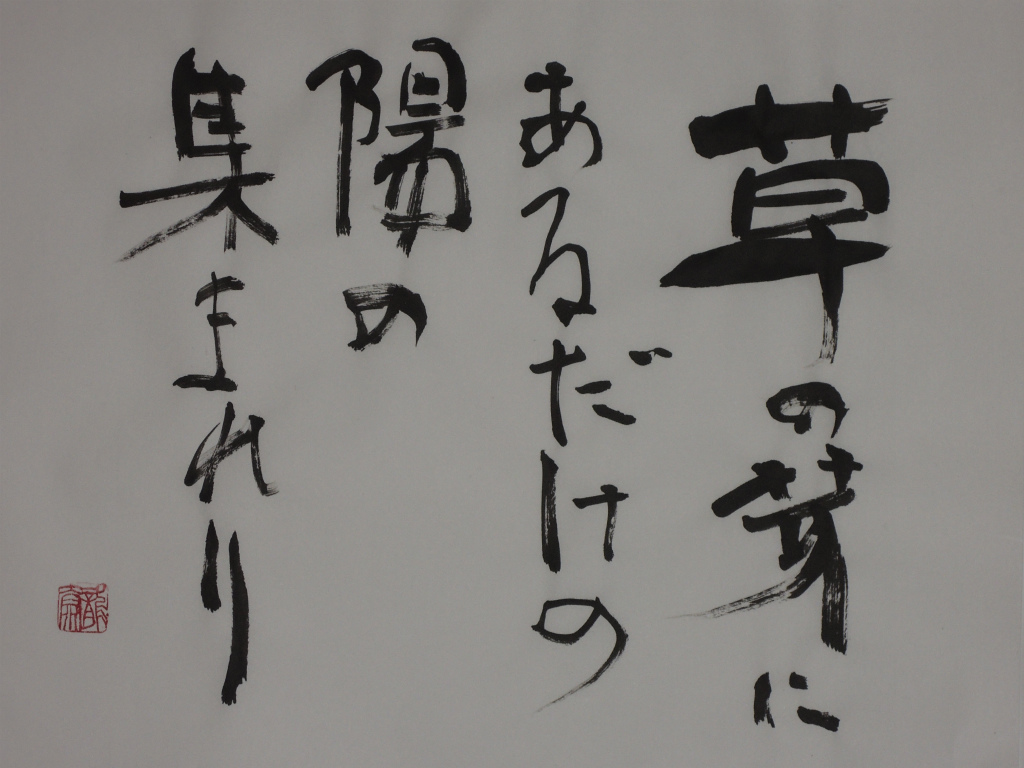 草の芽に
あるだけの
陽の
集まれり